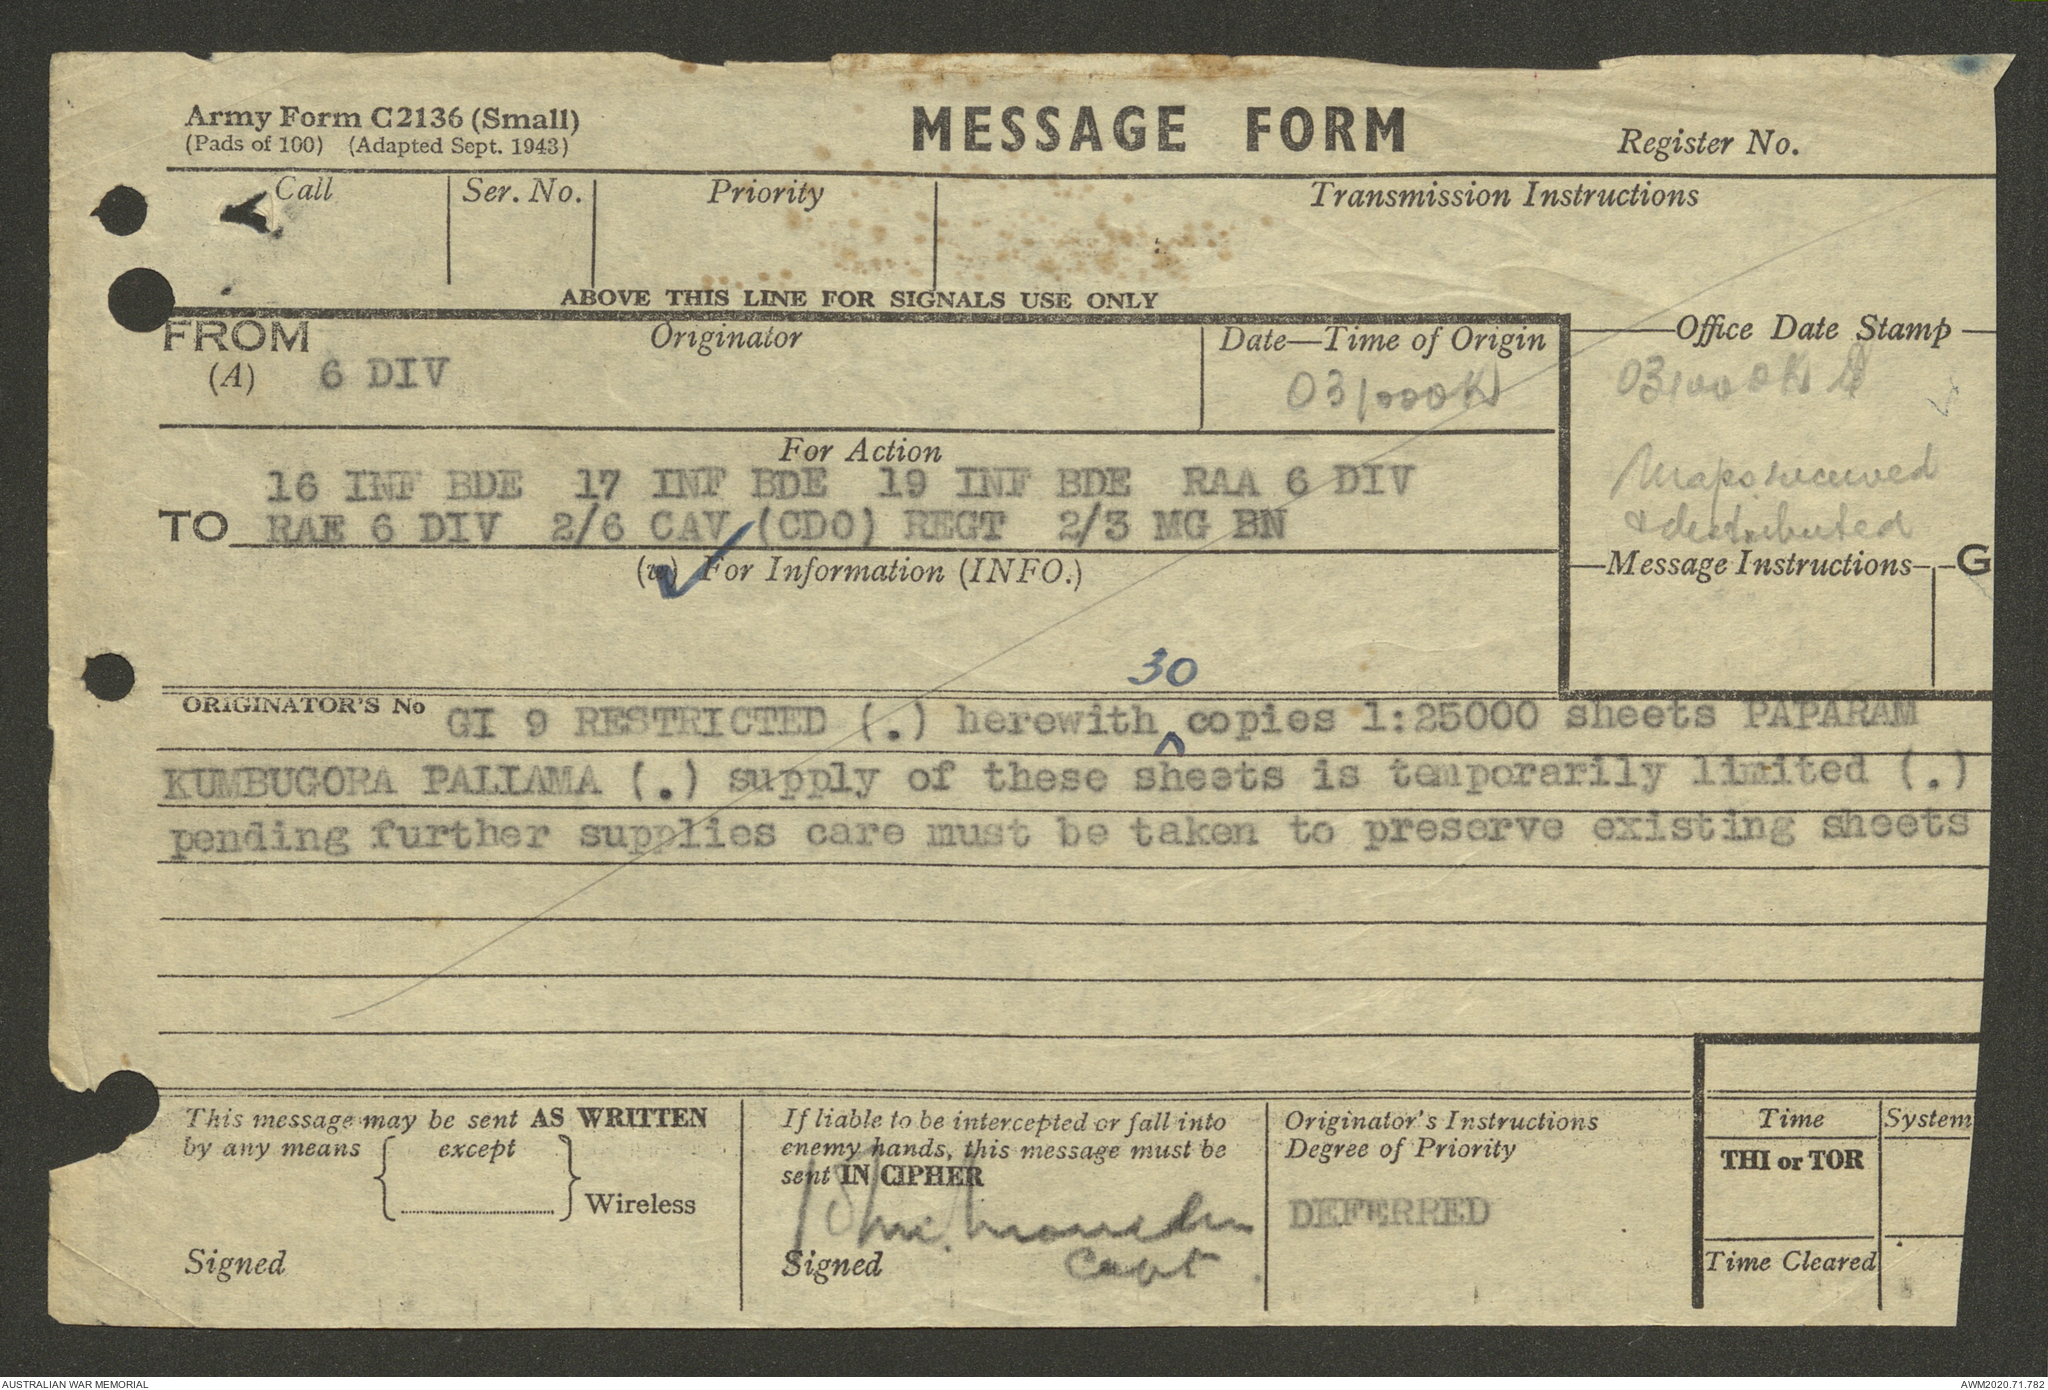 Army Form C2136 (Small)
(Pads of 100) (Adapted Sept. 1943)
MESSAGE FORM
Register No.
Call
Ser. No.
Priority
Transmission Instructions
ABOVE THIS LINE FOR SIGNALS USE ONLY
FROM
(A)
Originator
6 DIV
Date—Time of Origin
031000K
Office Date Stamp
031000K
Maps received
& distributed
For Action
TO
16 INF BDE 17 INF BDE 19 INF BDE RAA 6 DIV
RAE 6 DIV 2/6 CAV (CDO) REGT 2/3 MG BN
(w) For Information (INFO.)
Message Instructions
G
30
ORIGINATOR'S No
GI 9 RESTRICTED (.) herewith ^ copies 1:25000 sheets PAPARAM
KUMBUGORA PALIAMA (.) supply of these sheets is temporarily limited (.)
pending further supplies care must be taken to preserve existing sheets
This message may be sent AS WRITTEN
by any means
except
Wireless
Signed
If liable to be intercepted or fall into
enemy hands, this message must be
sent IN CIPHER
Signed
Capt
Originator's Instructions
Degree of Priority
DEFERRED
Time
System
THI or TOR
Time Cleared
AUSTRALIAN WAR MEMORIAL
AWM2020.71.782